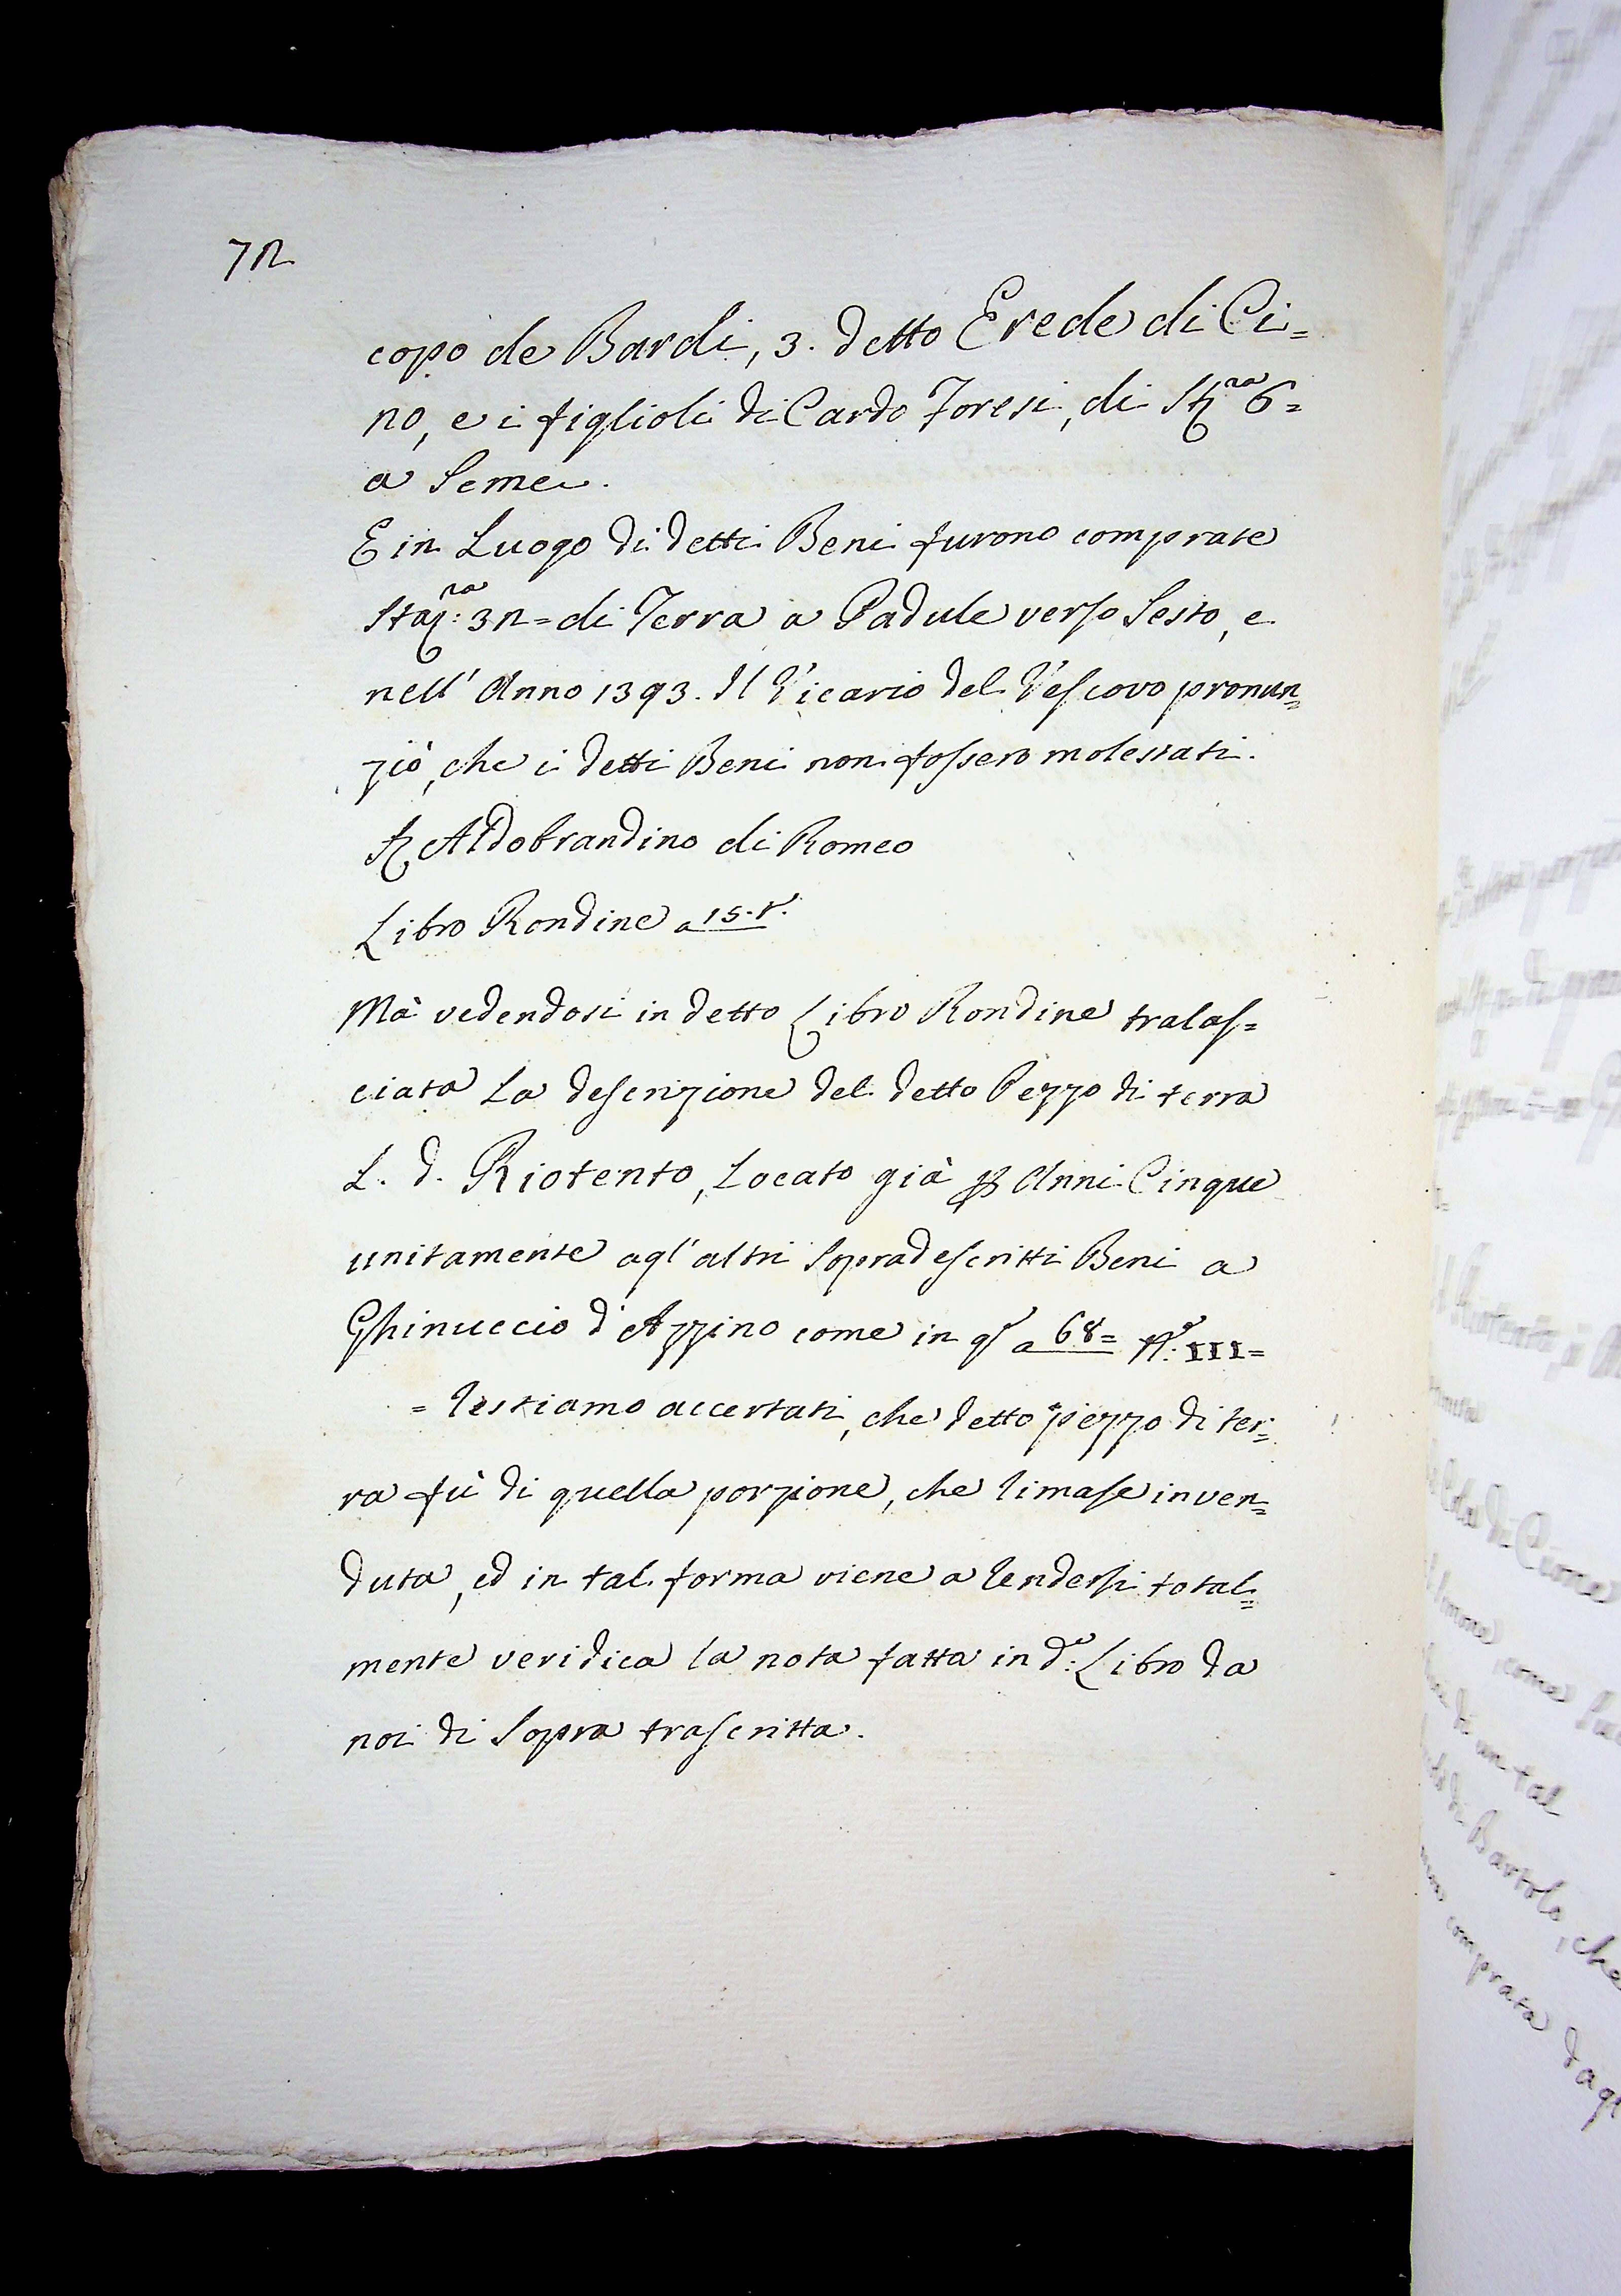 72
copo de Bardi, 3. detto Erede di Ci=
no, e i figlioli di Cardo Toresi, di St.ra 6=
a Seme.
E in Luogo di detti Beni furono comprate
Staj:ra 32= di Terra a Padule verso Sesto, e
nell' Anno 1393. Il Vicario del Vescovo pronun=
ziò, che i detti Beni non fossero molestati.
Aldobrandino di Romeo
Libro Rondine a 15. t.
Mà vedendosi in detto Libro Rondine tralas=
ciata La descrizione del detto Pezzo di terra
L. d. Riotento, Locato già p Anni Cinque
unitamente agl' altri Sopradescritti Beni a
Ghinuccio d'Azzino come in q.o a 68= III=
= restiamo accertati, che detto pezzo di ter=
ra fù di quella porzione, che rimase inven=
duta, ed in tal forma viene a rendersi total=
mente veridica la nota fatta in d:o Libro da
noi di Sopra trascritta.